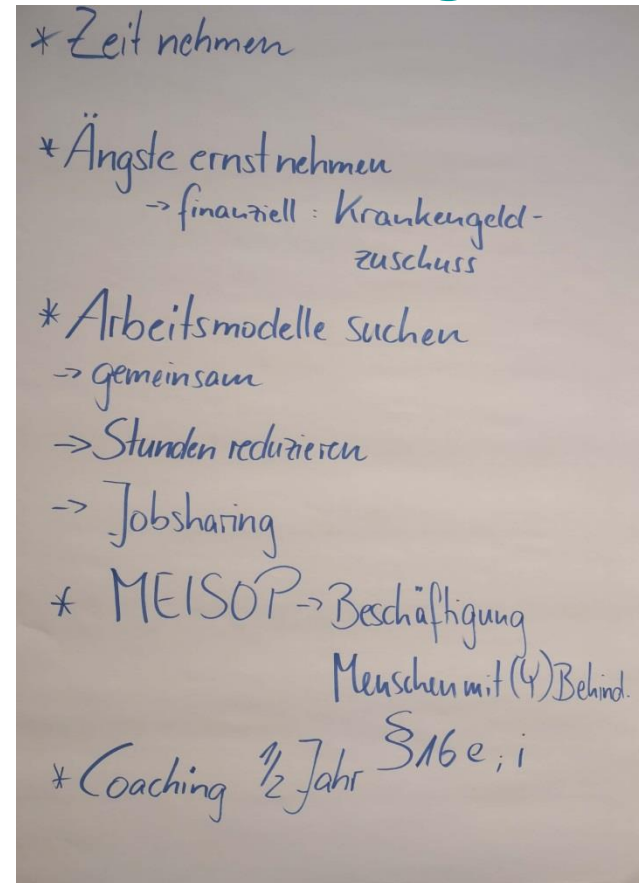 * Zeit nehmen
* Ängste ernst nehmen
-> finanziell : Krankengeld-
zuschuss
* Arbeitsmodelle suchen
-> gemeinsam
-> Stunden reduzieren
-> Jobsharing
* MEISOP -> Beschäftigung
Menschen mit (Ψ) Behind.
* Coaching 1/2 Jahr §16 e, i